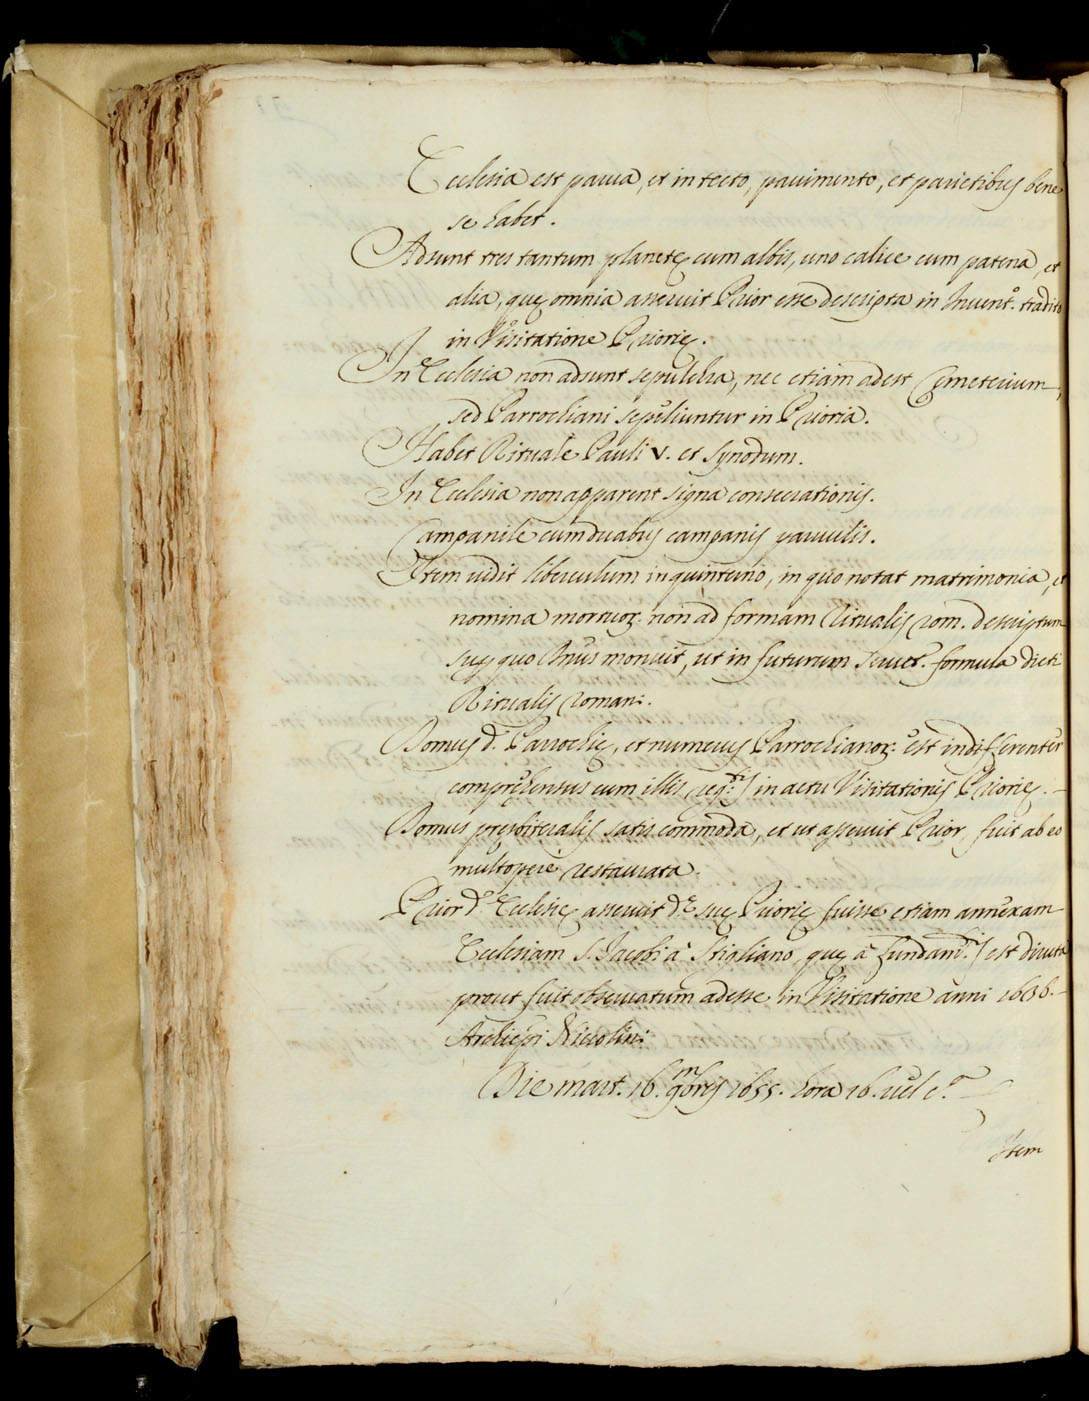 Ecclesia est parua, et in tecto, pauimento, et parietibus bene
se habet.
Adsunt tres tantum planetę cum albis, uno calice cum patena, et
alia, quę omnia asseruit Prior esse descripta in Inuent.º tradito
in Visitatione Priorię.
In Ecclesia non adsunt sepulchra, nec etiam adest Cęmeterium,
sed Parrochiani sepeliuntur in Prioria.
Habet Rituale Pauli V. et Synodum.
In Ecclesia non apparent signa consecrationis.
Campanile cum duabus campanis paruulis.
Item uidit liberculum in quinterno, in quo notat matrimonia, et
nomina mortuoꝝ: non ad formam Ritualis rom. descriptum
sup quo Dnus monuit, ut in futurum seruet formula dicti
Ritualis romani.
Domus d.ę Parrochię, et numerus Parrochianoꝝ: est indifferenter
comprehensus cum illis in actu Visitationis Priorię.
Domus presbiteralis satis commoda, et ut asseruit Prior, fuit ab eo
multopere restaurata.
Prior d.ę Ecclesię asseruit d.ę suę Priorię fuisse etiam annexam
Ecclesiam S. Jacobi à Stigliano, quę à fundam.tis est diruta
prout fuit obseruatum adesse in Visitatione anni 1636.
Archiepi Niccolini
Die mart. 16. 9mbris 1655. hora 16. uel c.ª
Item